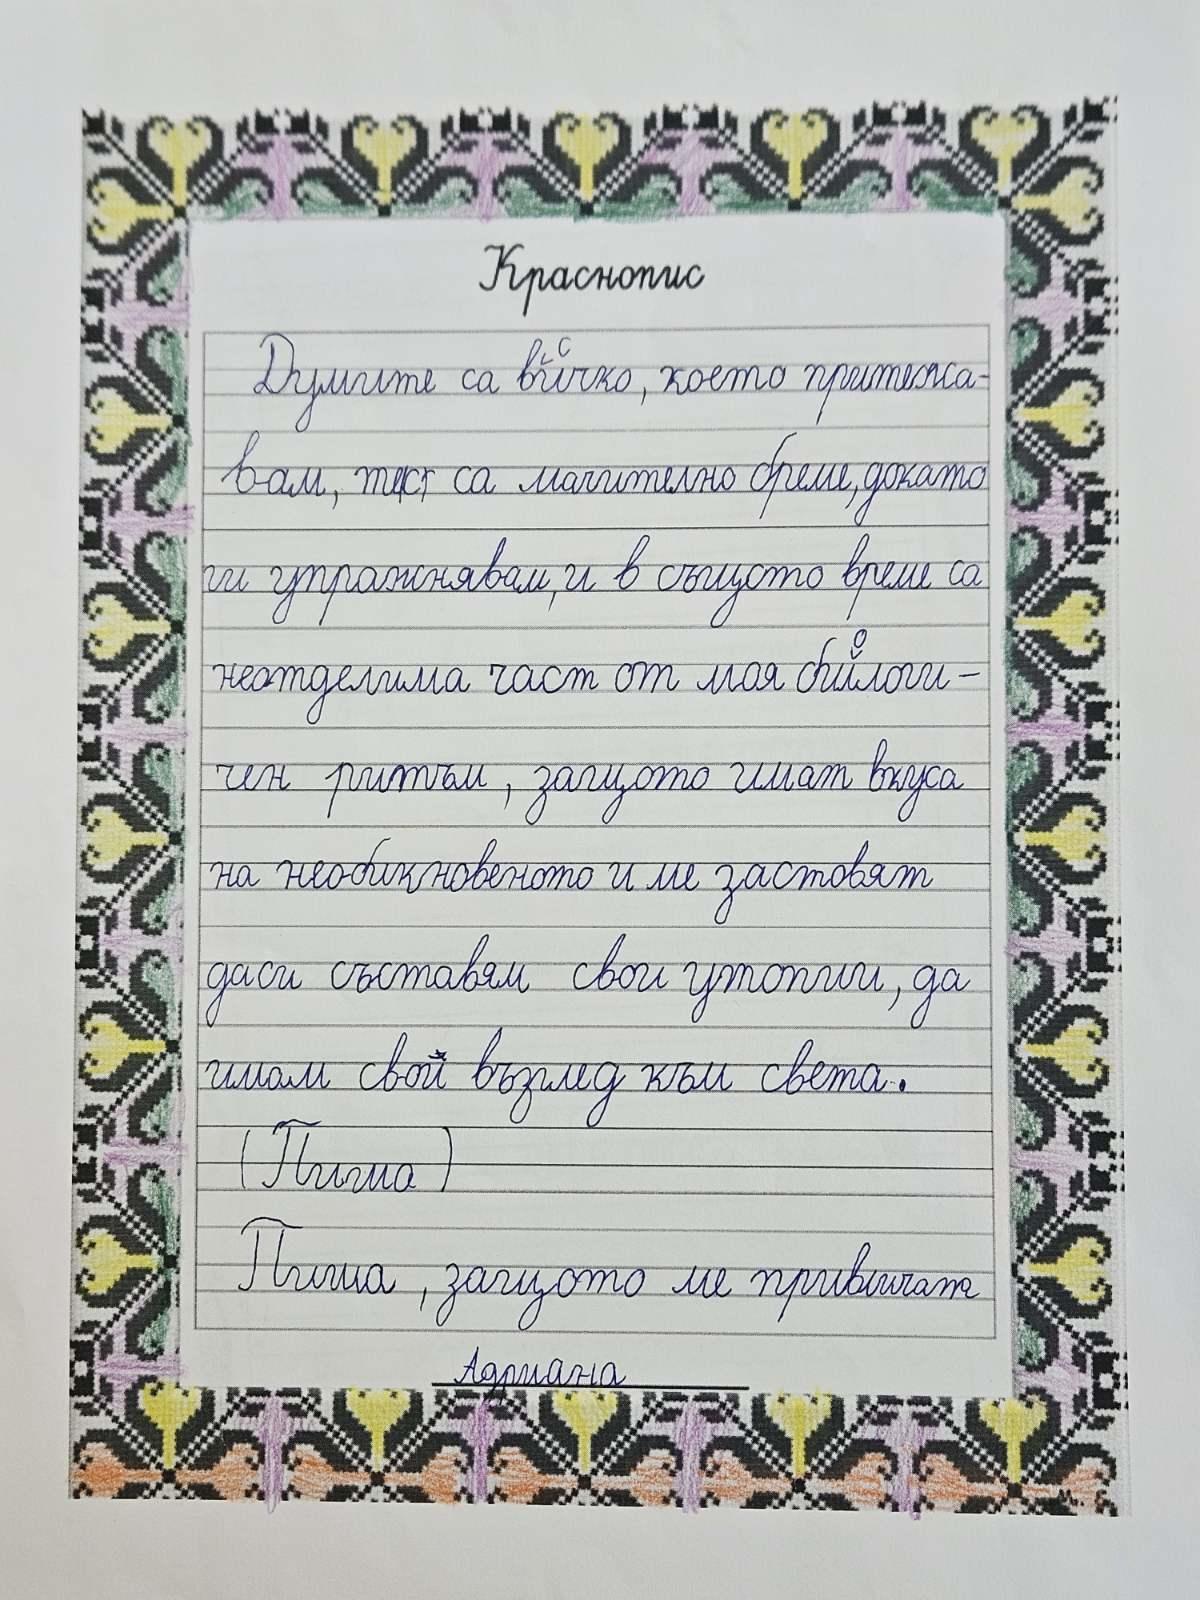 Краснопис
Думите са всичко, което притежа-
вам, те са мъчително бреме, докато
ги упражнявам, и в същото време са
неотделима част от моя биологи-
чен ритъм, защото имат вкуса
на необикновеното и ме заставят
да си съставям свои утопии, да
имам свой възглед към света.
(Пиша)
Пиша, защото ме привличат
Адриана